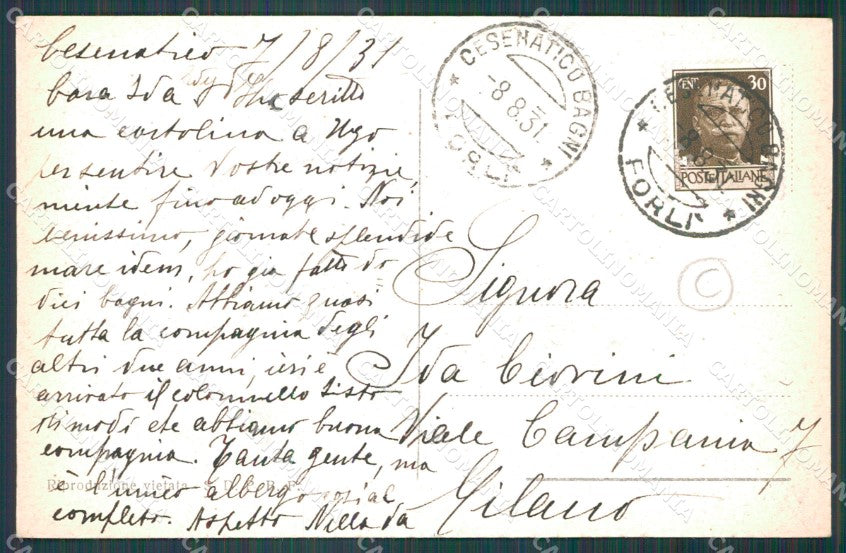 Cesenatico 7/8/31
Cara Ida scritto
una cartolina a Ugo
per sentire Vostre notizie,
niente fino ad oggi. Noi
benissimo, giornate splendide
mare idem, ho già fatto do
dici bagni. Abbiamo quasi
tutta la compagnia degli
altri due anni, ieri è
arrivato il colonnello Sisto
di modo che abbiamo buona
compagnia. Tanta gente, ma
è l'unico albergo
completo. Aspetto Nella da
Riproduzione vietata
CESENATICO BAGNI
-8.8.31
FORLÌ
CENT. 30
POSTE ITALIANE
CESENATICO BAGNI
FORLÌ
Signora
Ida Ciorini
Viale Campania 7
Milano
C
CARTOLINOMANIA